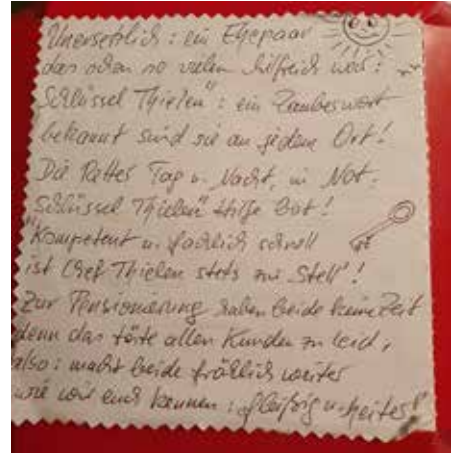 Unersetzlich: ein Ehepaar
das schon so vielen hilfreich war:
"Schlüssel Thielen": ein Zauberwort
bekannt sind sie an jedem Ort!
Die Retter Tag u. Nacht, in Not:
"Schlüssel Thielen" Hilfe bot!
Kompetent u. fachlich schnell
ist Chef Thielen stets zur "Stell"!
Zur Pensionierung haben beide keine Zeit
denn das täte allen Kunden zu leid,
also: macht beide fröhlich weiter
wie wir euch kennen: fleißig u. heiter!